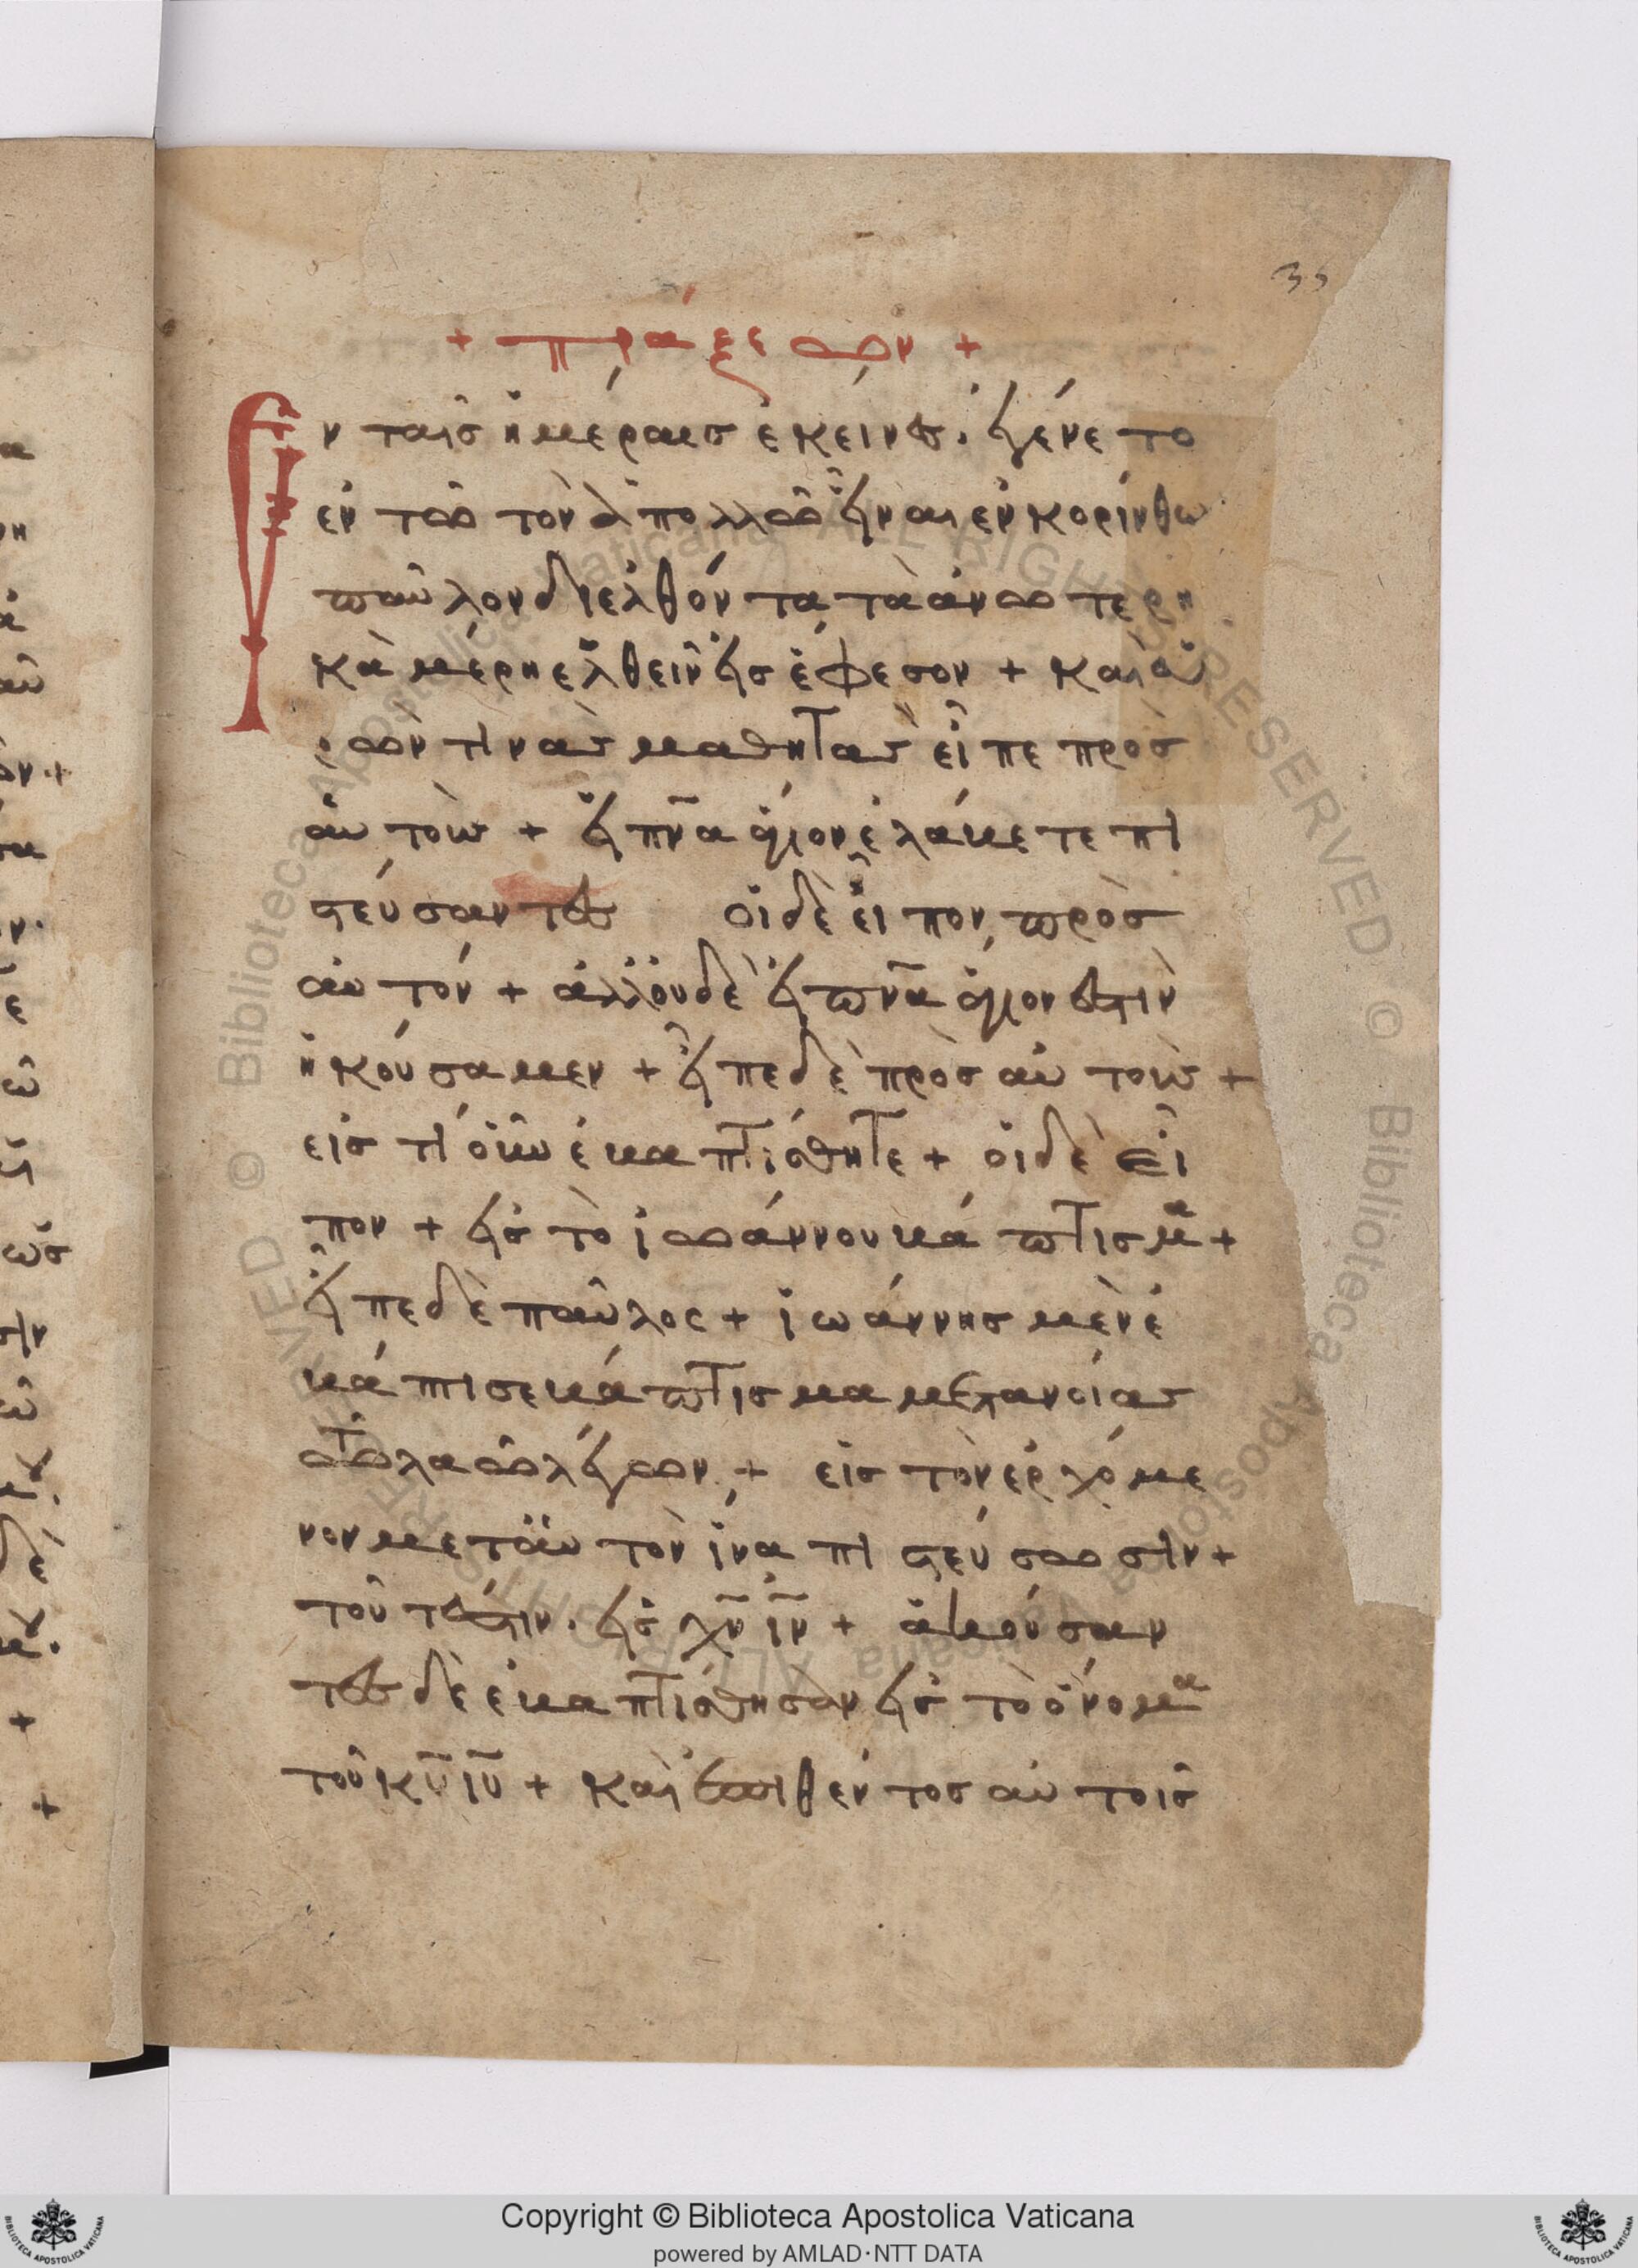 35
+ πράξεων +
Ἐν ταῖς ἡμέραις ἐκείναις· ἐγένετο
ἐν τῶ τὸν ἀπολλῶ εἶναι ἐν κορίνθω
παῦλον διελθόντα τὰ ἀνωτερη
κὰ μέρη ἐλθεῖν εἰς ἔφεσον + καὶ εὑ
ρὼν τινὰς μαθητὰς εἶπε πρὸς
αὐτούς + εἰ πνα ἅγιον ἐλάβετε πι
στεύσαντες οἱ δὲ εἶπον πρὸς
αὐτόν + ἀλλ οὐδὲ εἰ πνα ἅγιον ἐστὶν
ἠκούσαμεν + εἶπε δὲ πρὸς αὐτοὺς +
εἰς τί οὖν ἐβαπτίσθητε + οἱ δὲ εἶ
πον + εἰς τὸ ἰωάννου βάπτισμα +
εἶπε δὲ παῦλος + ἰωάννης μὲν ἐ
βάπτισε βάπτισμα μετανοίας
τῶ λαῶ λέγων + εἰς τὸν ἐρχόμε
νον μετ αὐτὸν ἵνα πιστεύσωσιν +
τοῦτ ἐστιν· εἰς χν ιν + ἀκούσαν
τες δὲ ἐβαπτίσθησαν εἰς τὸ ὄνομα
τοῦ κυ ιυ + καὶ ἐπιθέντος αὐτοῖς
Copyright © Biblioteca Apostolica Vaticana
powered by AMLAD·NTT DATA